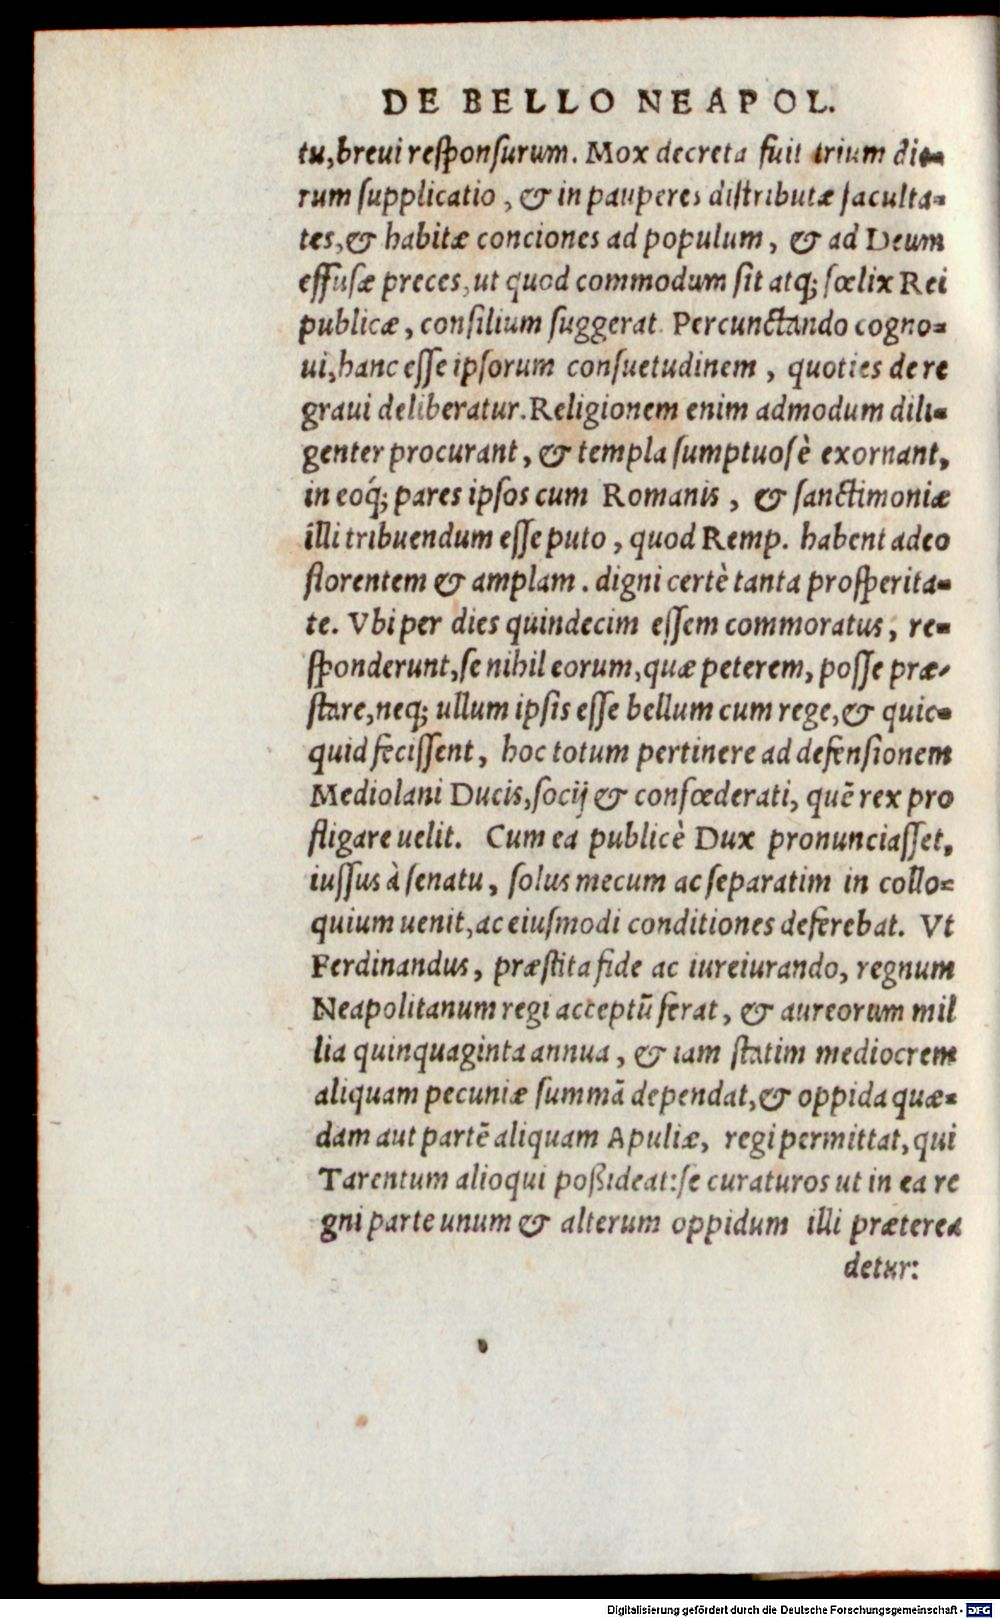 DE BELLO NEAPOL.
tu, breui responsurum. Mox decreta fuit trium die-
rum supplicatio, & in pauperes distributæ faculta-
tes, & habitæ conciones ad populum, & ad Deum
effusæ preces, ut quod commodum sit atq; fœlix Rei
publicæ, consilium suggerat. Percunctando cogno-
ui, hanc esse ipsorum consuetudinem, quoties de re
graui deliberatur. Religionem enim admodum dili-
genter procurant, & templa sumptuosè exornant,
in eoq́; pares ipsos cum Romanis, & sanctimoniæ
illi tribuendum esse puto, quod Remp. habent adeo
florentem & amplam. digni certè tanta prosperita-
te. Vbi per dies quindecim essem commoratus, re-
sponderunt, se nihil eorum, quæ peterem, posse præ-
stare, neq; ullum ipsis esse bellum cum rege, & quic-
quid fecissent, hoc totum pertinere ad defensionem
Mediolani Ducis, socij & confœderati, quē rex pro
fligare uelit. Cum ea publicè Dux pronunciasset,
iussus à senatu, solus mecum ac separatim in collo-
quium uenit, ac eiusmodi conditiones deferebat. Vt
Ferdinandus, præstita fide ac iureiurando, regnum
Neapolitanum regi acceptū ferat, & aureorum mil
lia quinquaginta annua, & iam statim mediocrem
aliquam pecuniæ summā dependat, & oppida quæ-
dam aut partē aliquam Apuliæ, regi permittat, qui
Tarentum alioqui poßideat: se curaturos ut in ea re
gni parte unum & alterum oppidum illi præterea
detur:
Digitalisierung gefördert durch die Deutsche Forschungsgemeinschaft - DFG